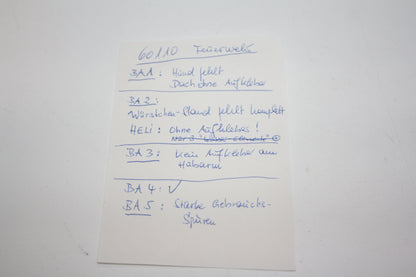 60110 Feuerwehr
BA 1: Hund fehlt
Dach ohne Aufkleber
BA 2:
Würstchen-Stand fehlt komplett
HELI: Ohne Aufkleber!
BA 3: Kein Aufkleber am
BA 4: ✓
BA 5: Starke Gebrauchs-
Spuren